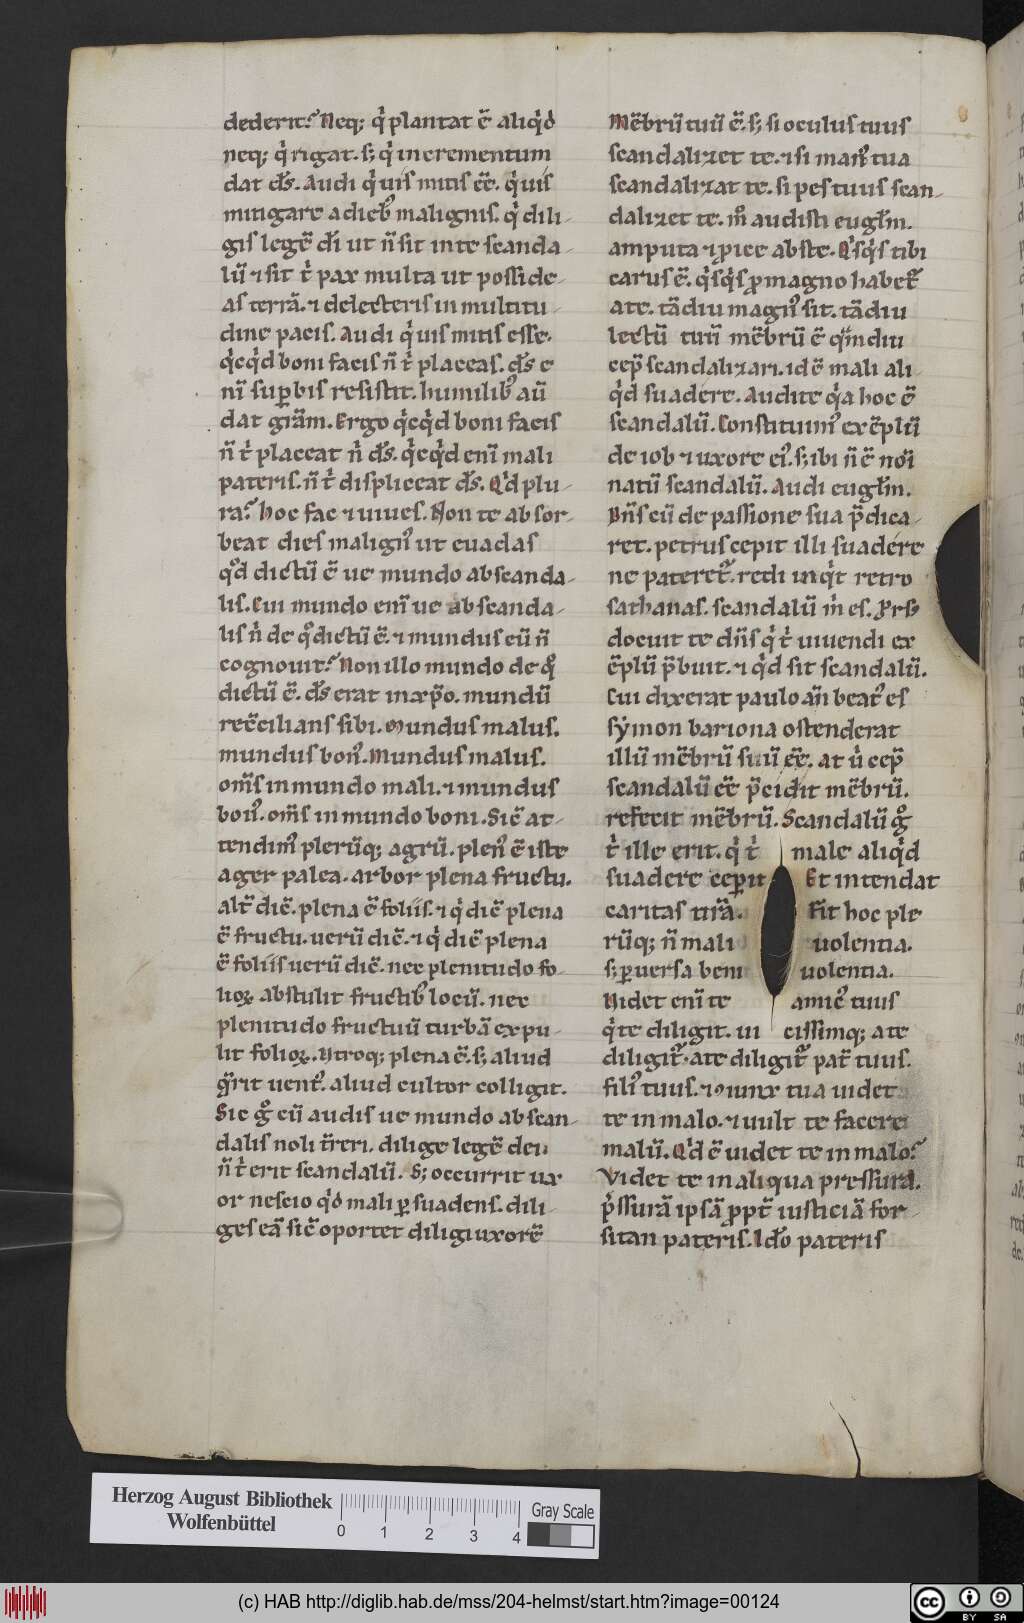 dederit? Neq; qͥ plantat ē aliqͥd
neq; qͥ rigat. s; qͥ incrementum
dat d̄s. Audi qͥ uis mitis ēē. qͥ uis
mitigare a dieb᷒ malignis. qͥ dili-
gis legē d̄i ut n̄ sit in te scanda-
lū ⁊ sit tͥ pax multa ut posside-
as terrā. ⁊ delecteris in multitu-
dine pacis. Audi qͥ uis mitis esse.
qͥcqͥd boni facis n̄ tͥ placeas. d̄s e
nī suꝑbis resistit. humilib᷒ aū
dat gr̄am. Ergo qͥcqͥd boni facis
n̄ tͥ placeat nͥ d̄s. qͥcqͥd enī mali
pateris. n̄ tͥ displiceat d̄s. Qͥd plu-
ra? hoc fac ⁊ uiues. Non te absor-
beat dies malign᷒ ut euadas
qͦd dictū ē ue mundo ab scanda-
lis. Cui mundo enī ue ab scanda-
lis nͥ de qͦ dictū ē. ⁊ mundus eū n̄
cognouit? Non illo mundo de qͦ
dictū ē. d̄s erat in xp̄o. mundū
recc̄ilians sibi. Mundus malus.
mundus bon᷒. Mundus malus.
om̄s in mundo mali. ⁊ mundus
bon᷒. om̄s in mundo boni. Sic̄ at-
tendim᷒ plerūq; agrū. plen᷒ ē iste
ager palea. arbor plena fructu.
alt̄ dic̄. plena ē foliis. ⁊ qͥ dic̄ plena
ē fructu. uerū dic̄. ⁊ qͥ dic̄ plena
ē foliis uerū dic̄. nec plenitudo fo-
lioꝝ abstulit fructib᷒ locū. nec
plenitudo fructuū turbā expu-
lit folioꝝ. Utroq; plena ē. s; aliud
q̄rit uent᷒. aliud cultor colligit.
Sic gͦ cū audis ue mundo ab scan-
dalis noli t̄reri. dilige legē dei
n̄ tͥ erit scandalū. S; occurrit ux
or nescio qͥd mali ꝑsuadens. dili-
ges eā sic̄ oportet diligi uxorē
Mēbrū tuū ē. s; si oculus tuus
scandalizet te. ⁊ si man᷒ tua
scandalizat te. si pes tuus scan-
dalizet te. mͦ audisti eugl̄m.
amputa ⁊ ꝓice abs te. Qͥsqͥs tibi
carus ē. qͥsqͥs ꝓ magno habet᷑
a te. tādiu magn᷒ sit. tādiu
lectū tuū mēbrū ē qͣmdiu
cep̄ scandalizari. id ē mali ali-
qͥd suadere. Audite qͥa hoc ē
scandalū. Constituim᷒ exēplū
de iob ⁊ uxore ei᷒. s; ibi n̄ ē noī
natū scandalū. Audi eugl̄m.
Dn̄s cū de passione sua p̄dica-
ret. petrus cepit illi suadere
ne pateret᷑. redi inqͥt retro
sathanas. scandalū mͥ es. Prs᷒
docuit te dn̄s qͥ tͥ uiuendi ex
ēplū p̄buit. ⁊ qͥd sit scandalū.
Cui dixerat paulo an̄ beat᷒ es
sẏmon bariona ostenderat
illū mēbrū suū ēē. at uͥ cep̄
scandalū ēē p̄cidit mēbrū.
refecit mēbrū. Scandalū gͦ
tͥ ille erit. qͥ tͥ male aliqͥd
suadere ceꝑit Et intendat
caritas ur̄a. Fit hoc ple
rūq; n̄ mali uolentia.
s; ꝑuersa beni uolentia.
Videt enī te amic᷒ tuus
qͥ te diligit. ui cissimq; a te
diligit᷑. a te diligit᷑ pat̄ tuus.
fili᷒ tuus. ⁊ coniunx tua uidet
te in malo. ⁊ uult te facere
malū. Qͥd ē uidet te in malo?
Videt te in aliqua pressura.
pͥssurā ipsā ꝓpt̄ iusticiā for-
sitan pateris. Id̄o pateris
Herzog August Bibliothek
Wolfenbüttel
0 1 2 3 4
Gray Scale
(c) HAB http://diglib.hab.de/mss/204-helmst/start.htm?image=00124
cc BY SA